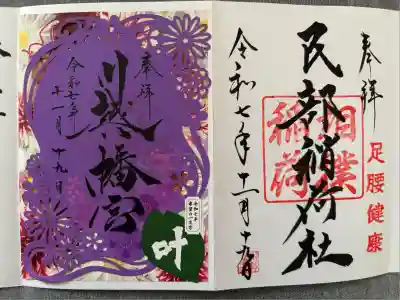 奉拝
川越八幡宮
令和七年
十一月十九日
叶
奉拝
足腰健康
民部稲荷社
相撲
稲荷
令和七年十一月十九日